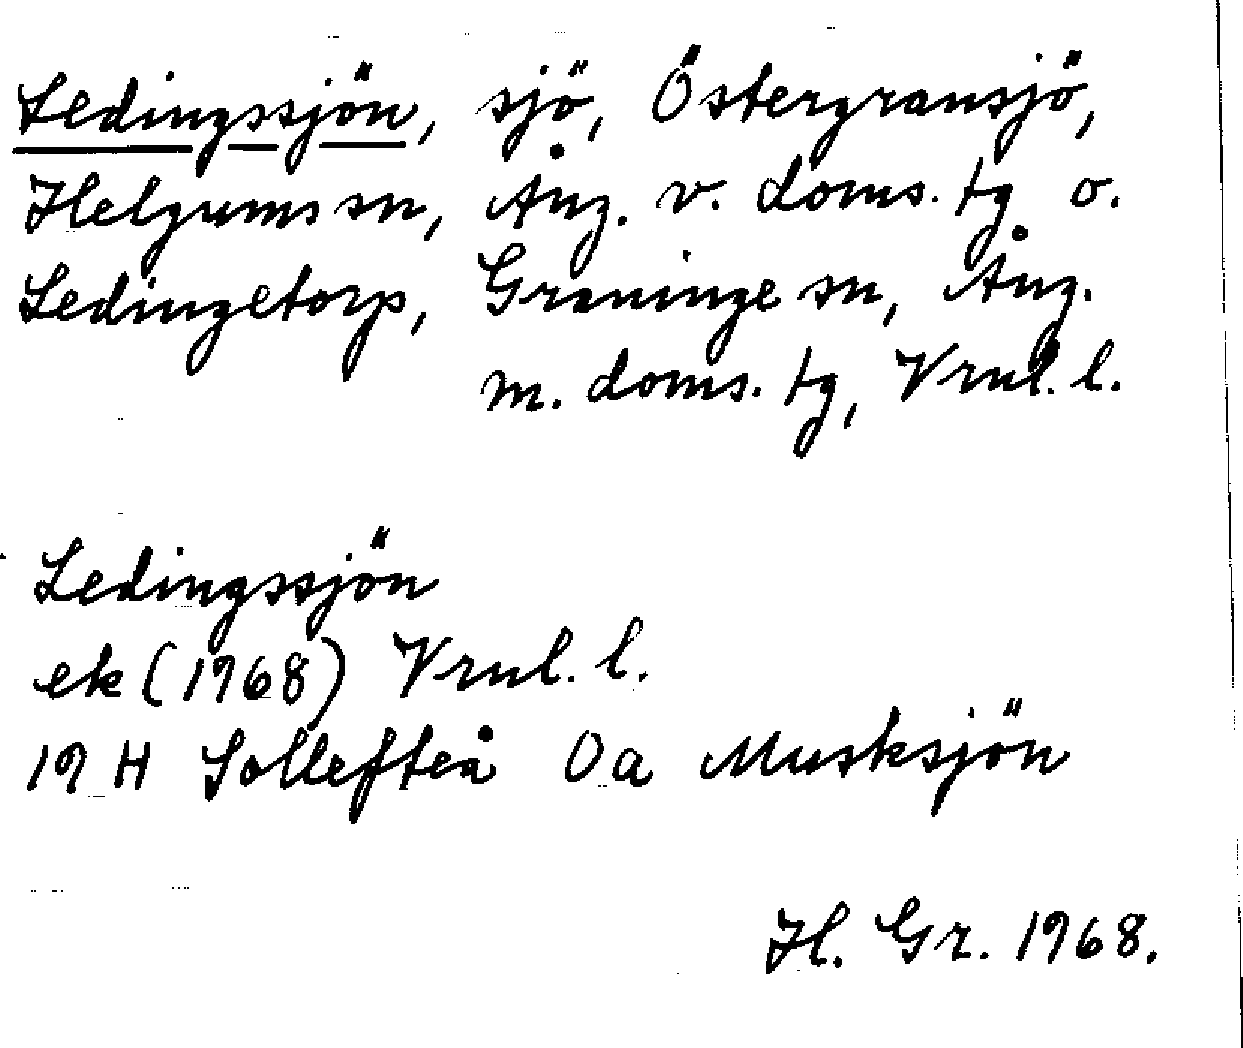 Ledingssjön, sjö, Östergransjö,
Helgums sn, Ång. v. doms. tg o.
Ledingetorp, Graninge sn, Ång.
m. doms. tg, Vrnl. l.
Ledingssjön
ek (1968) Vrnl. l.
19 H Sollefteå 0a Musksjön
H. Gr. 1968.